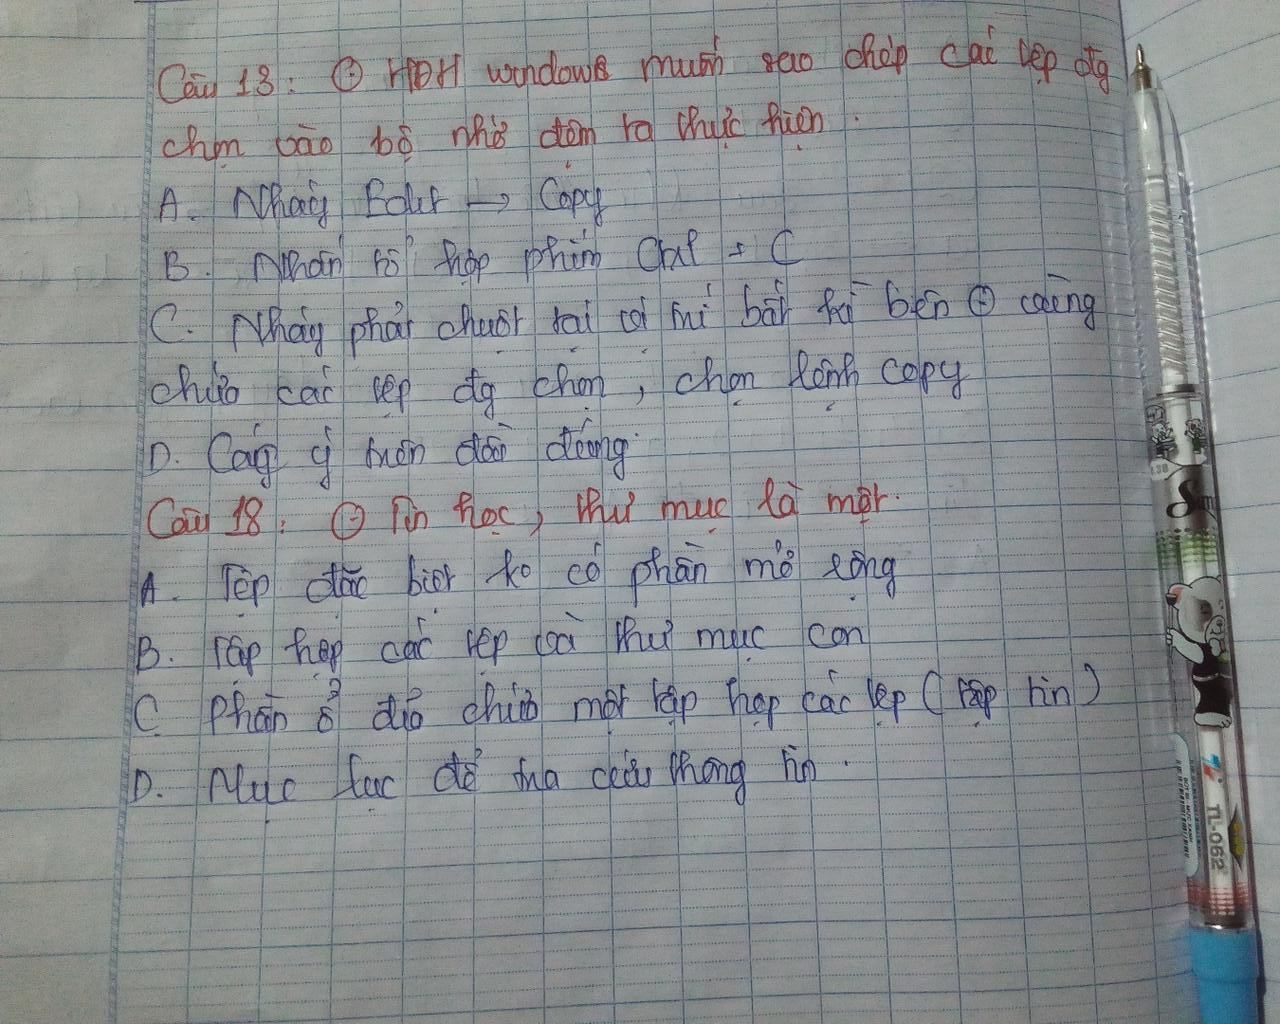 Câu 13: ⊕ HĐH windows muốn sao chép các tệp đg
chọn vào bộ nhớ đệm ta thực hiện.
A. Nháy Edit → Copy
B. Nhấn tổ hợp phím Ctrl + C
C. Nháy phải chuột tại vị trí bất kì bên ⊕ vùng
chứa các tệp đg chọn, chọn lệnh copy
D. Các ý trên đều đúng.
Câu 18: ⊕ Tin học, thư mục là một.
A. Tệp đặc biệt ko có phần mở rộng
B. Tập hợp các tệp và thư mục con
C Phần ổ đĩa chứa một tập hợp các tệp (tập tin)
D. Mục lục để tra cứu thông tin.
TL-062